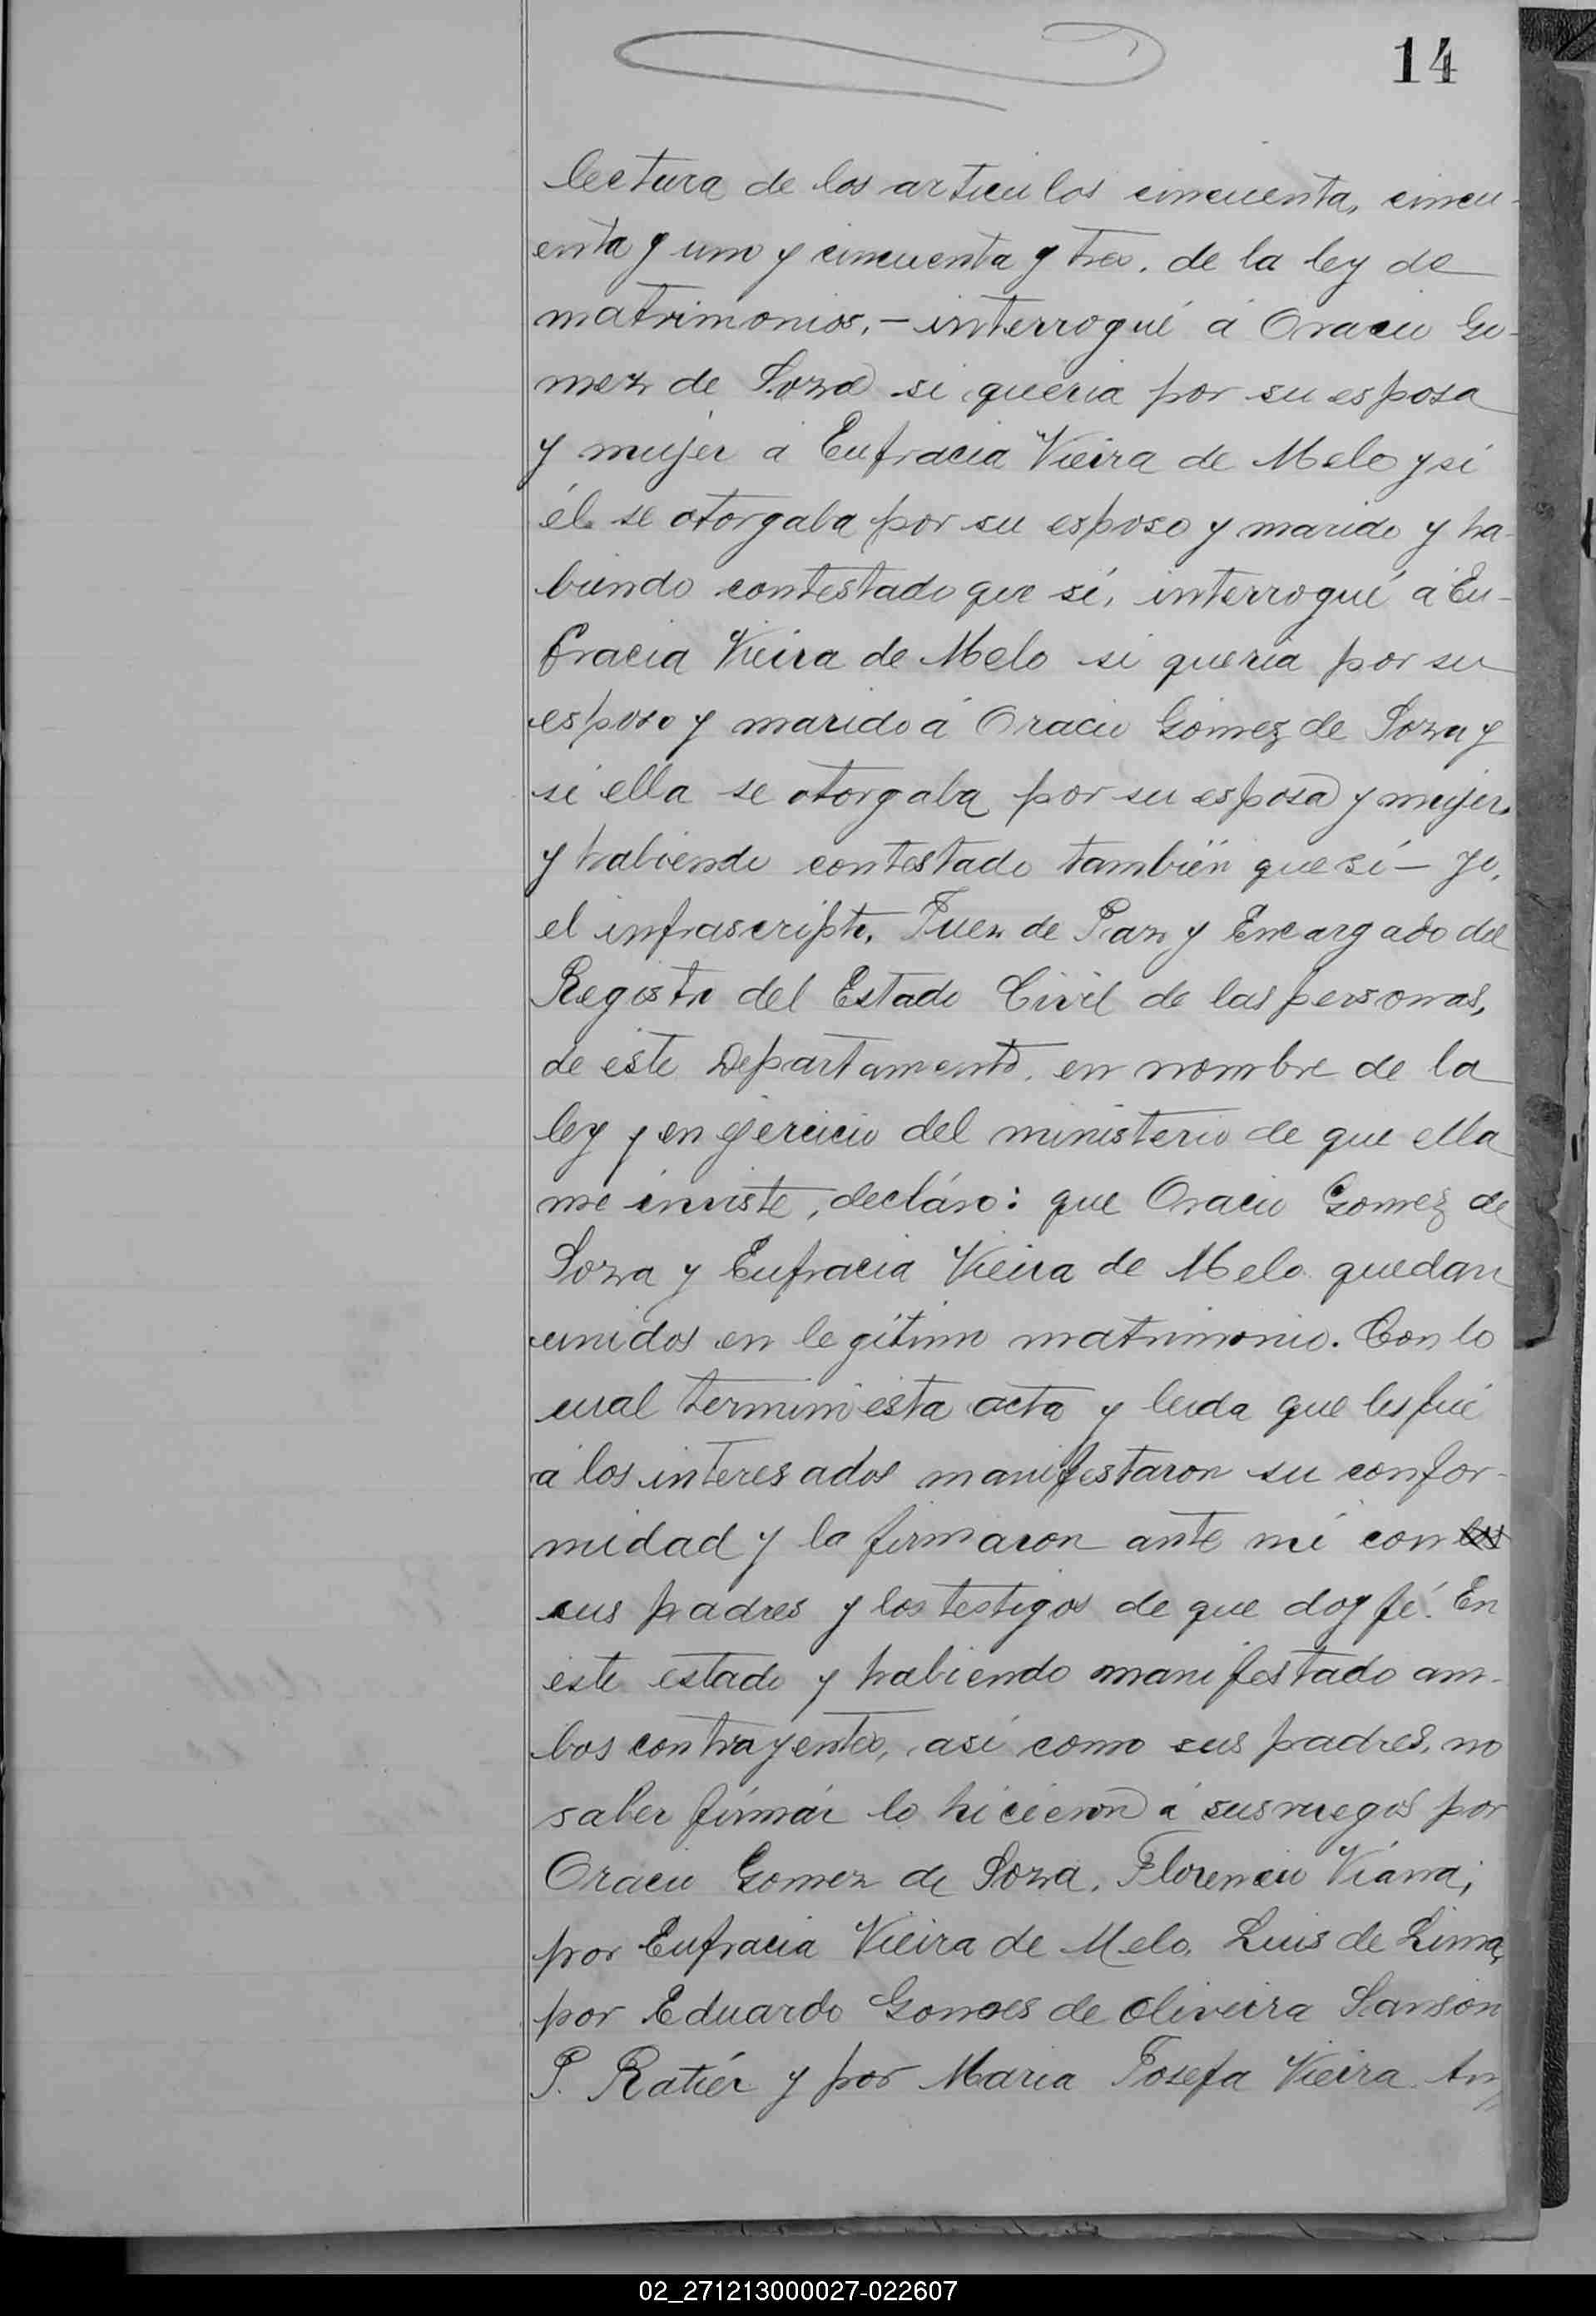 14
lectura de los articulos cincuenta, cincu-
enta y uno y cincuenta y tres. de la ley de
matrimonios, - interrogué á Oracio Go-
mez de Soza si queria por su esposa
y mujer á Eufracia Vieira de Melo y si
él se otorgaba por su esposo y marido y ha-
biendo contestado que sí, interrogué á Eu-
fracia Vieira de Melo si queria por su
esposo y marido á Oracio Gomez de Soza y
si ella se otorgaba por su esposa y mujer.
y habiendo contestado también que sí - yo,
el infrascripto, Juez de Paz y Encargado del
Registro del Estado Civil de las personas,
de este Departamento, en nombre de la
ley y en ejercicio del ministerio de que ella
me inviste, decláro: que Oracio Gomez de
Soza y Eufracia Vieira de Melo quedan
unidos en legítimo matrimonio. Con lo
cual terminó esta acta y leida que les fué
á los interesados manifestaron su confor-
midad y la firmaron ante mí con los
sus padres y los testigos de que doy fé. En
este estado y habiendo manifestado am-
bos contrayentes, así como sus padres, no
saber firmár lo hicieron á sus ruegos por
Oracio Gomez de Soza, Florencio Viana;
por Eufracia Vieira de Melo, Luis de Lima,
por Eduardo Gomes de Oliveira Sanson
P. Ratiér y por Maria Josefa Vieira An
02_271213000027-022607